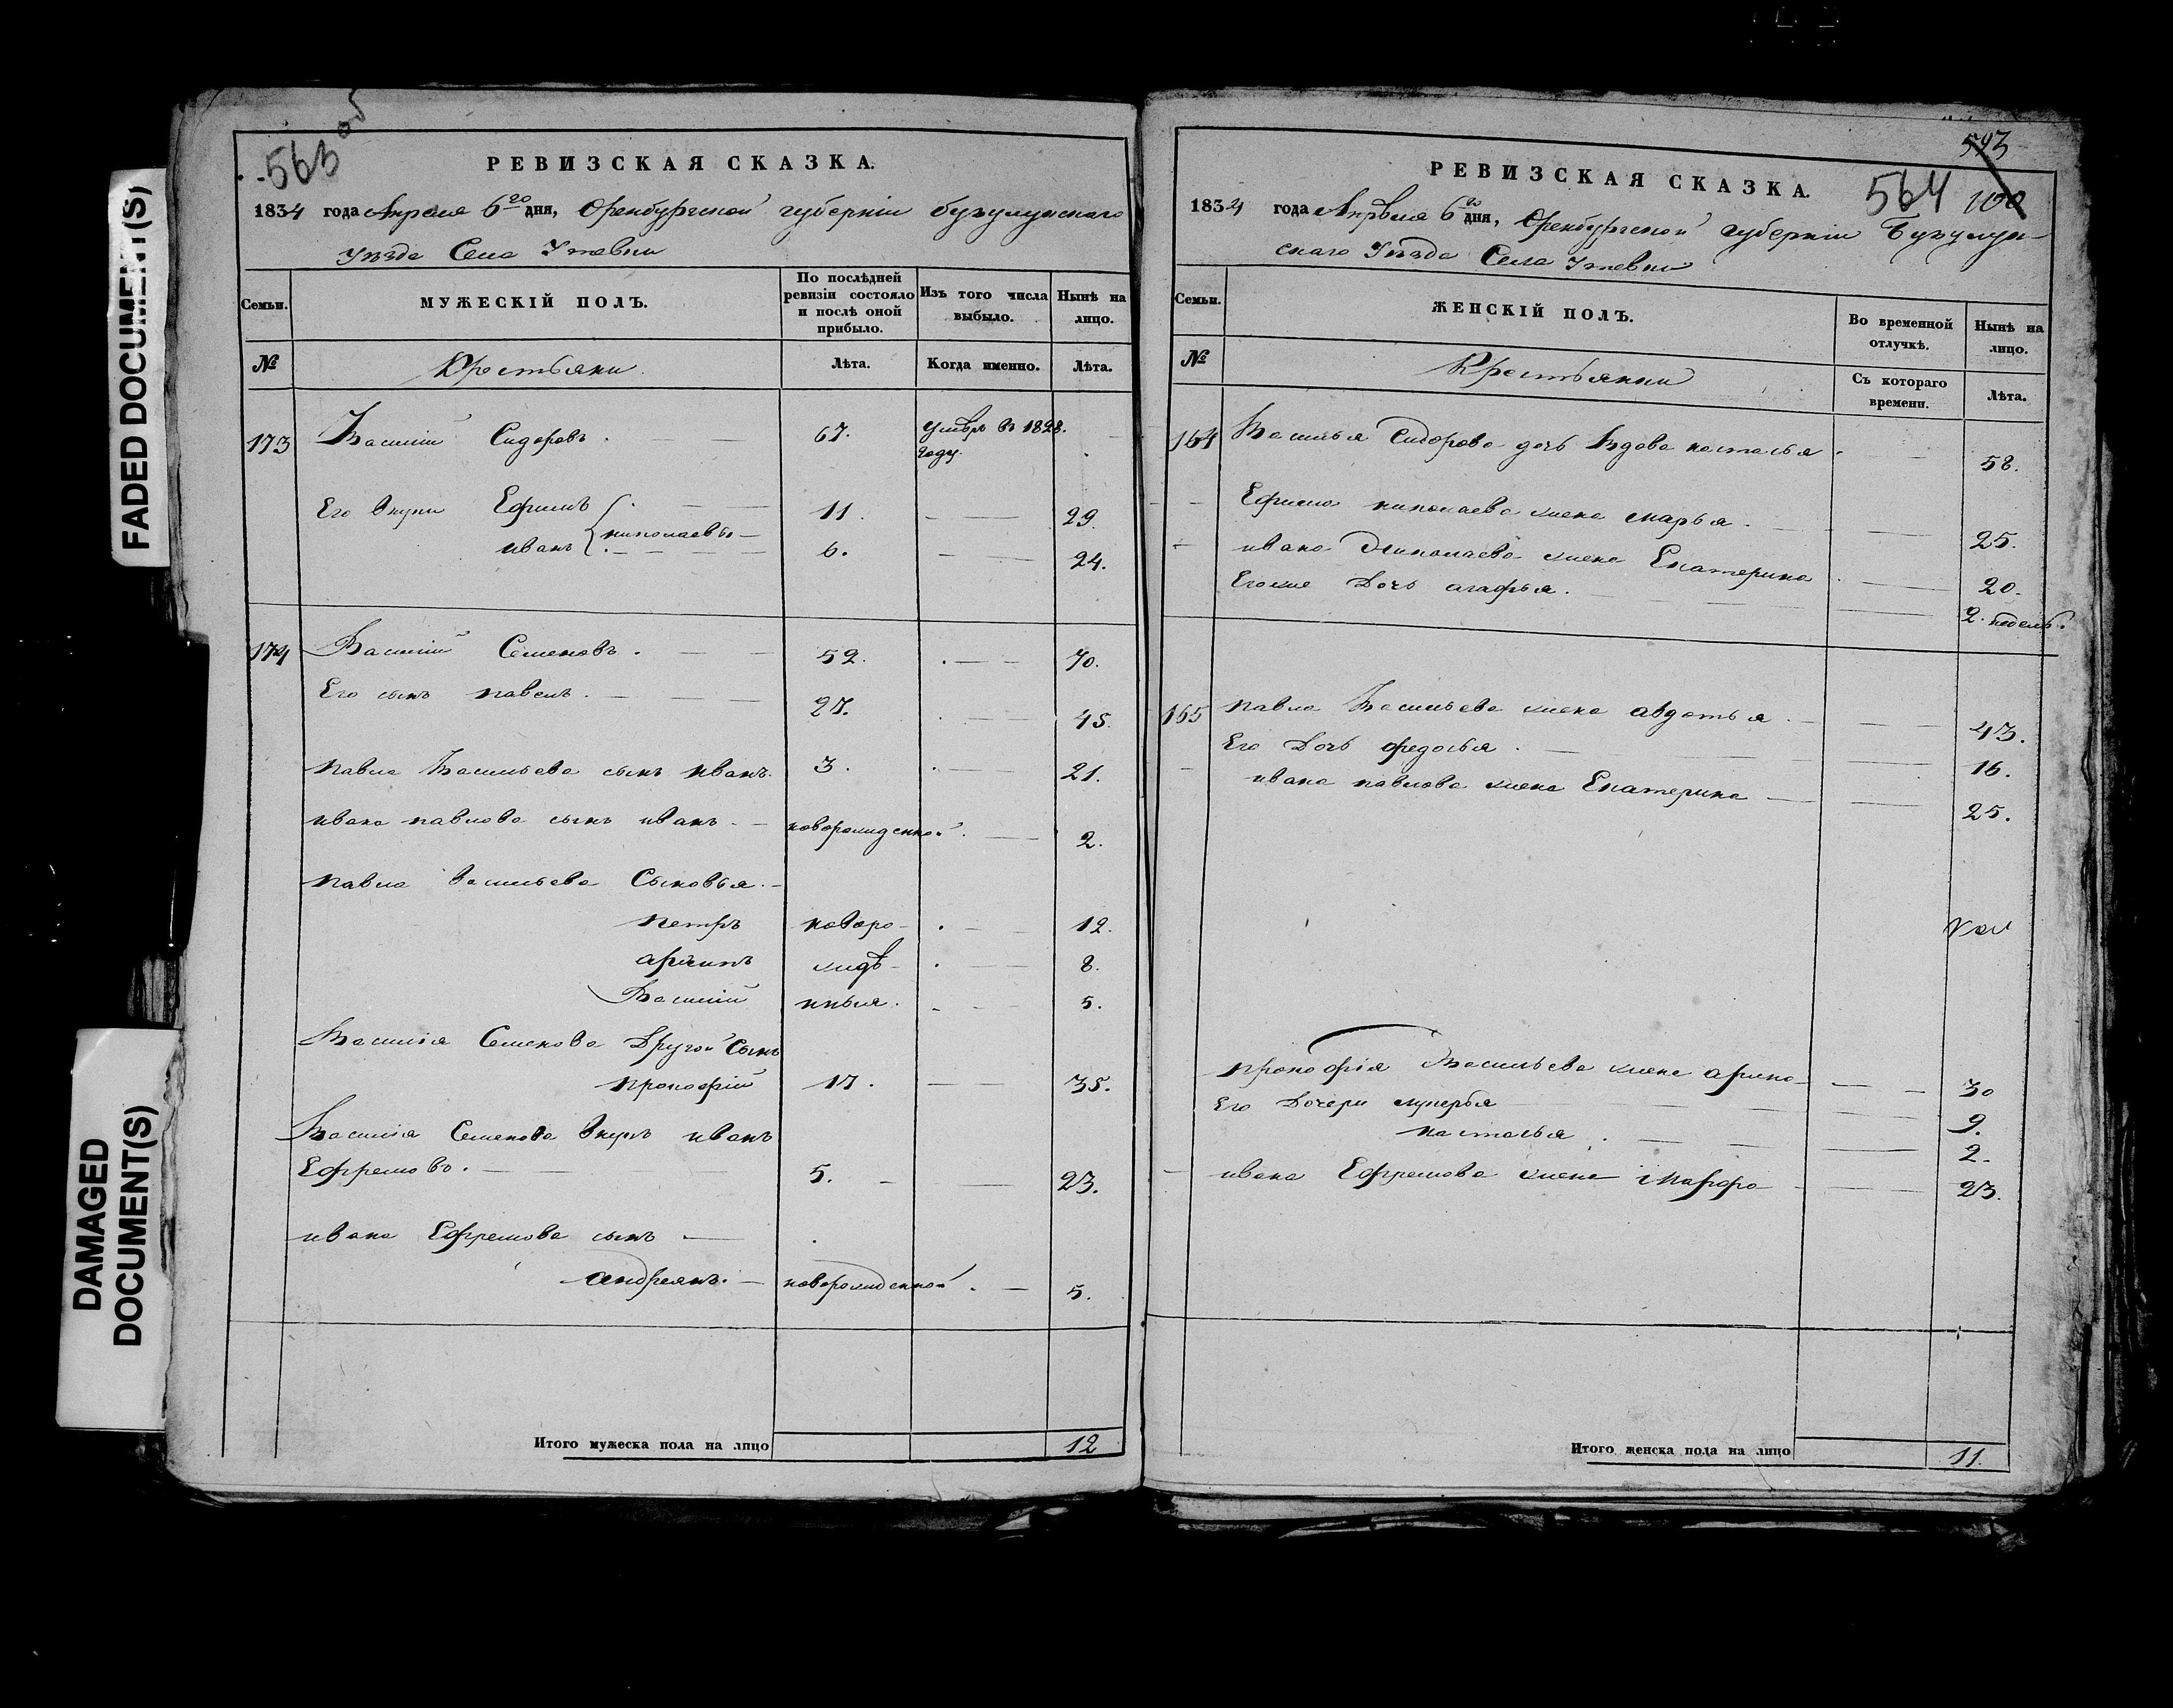 FADED DOCUMENT(S)
DAMAGED
DOCUMENT(S)
563 об
РЕВИЗСКАЯ СКАЗКА.
1834 года Апреля 6го дня, Оренбургской губернии бузулукского
уезда Села Утевки
Семьи. МУЖЕСКІЙ ПОЛЪ. По послѣдней ревизіи состояло и послѣ оной прибыло. Изъ того числа выбыло. Нынѣ на лицо.
№ Крестьяни Лѣта. Когда именно. Лѣта.
173 Василий Сидоровъ. 67. умвръ въ 1828.
году.
Его внуки Ефимъ 11. 29.
николаевы
иванъ 6. 24.
174 Василий Семеновъ. 52. 70.
Его сынъ павелъ. 27. 45.
павла Васильева сынъ иванъ. 3. 21.
ивана павлова сынъ иванъ новорожденной. 2.
павла васильева Сыновья.
петръ новоро- 12.
жде- 8.
Василий нныя. 5.
Василия Семенова Другой Сынъ
прокофий 17. 35.
Василия Семенова внукъ иванъ
Ефремовъ. 5. 23.
ивана Ефремова сынъ
андреянъ. новорожденной. 5.
Итого мужеска пола на лицо 12
593
564 100
РЕВИЗСКАЯ СКАЗКА.
1834 года Апреля 6го дня, Оренбургской губернии Бузулук-
скаго Уезда Села Утевки
Семьи. ЖЕНСКІЙ ПОЛЪ. Во временной отлучкѣ. Нынѣ на лицо.
№ Крестьянки Съ котораго времени. Лѣта.
164 Василья Сидорова дочь вдова настасья. 58.
Ефима николаева жена марья. 25.
ивана Николаева жена Екатерина 20.
Его же Дочь агафья. 2. недель.
165 павла Васильева жена авдотья 43.
Его Дочь федосья. 16.
ивана павлова жена Екатерина 25.
прокофія Васильева жена арина 30
Его Дочери лукерья 9.
настасья. 2.
ивана Ефремова жена Марфа 23.
Итого женска пола на лицо 11.